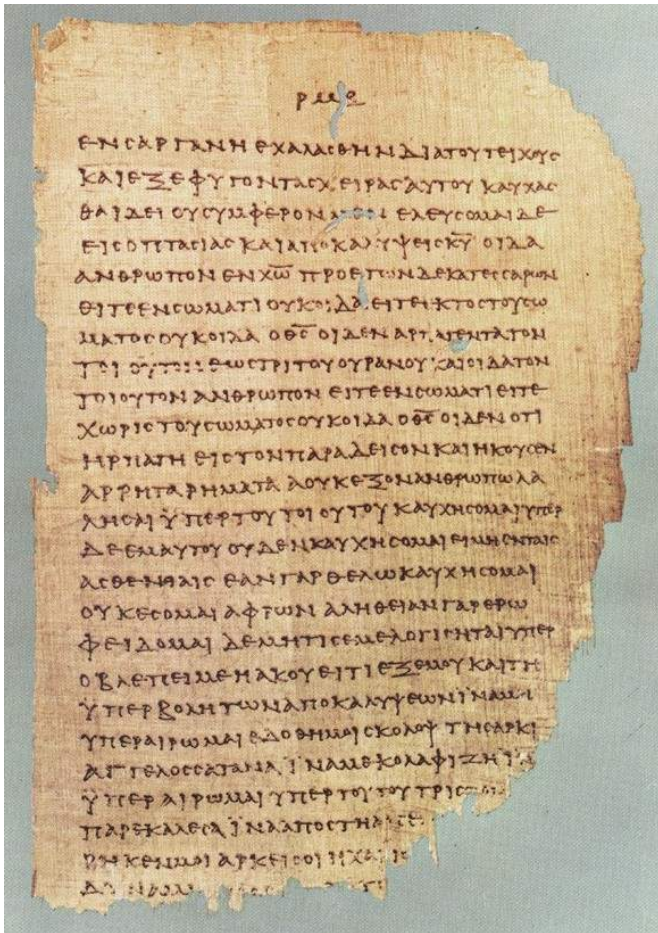 ρμε
ΕΝ CΑΡΓΑΝΗ ΕΧΑΛΑCΘΗΝ ΔΙΑ ΤΟΥ ΤΕΙΧΟΥC
ΚΑΙ ΕΞΕΦΥΓΟΝ ΤΑC ΧΕΙΡΑC ΑΥΤΟΥ ΚΑΥΧΑC
ΘΑΙ ΔΕΙ ΟΥ CΥΜΦΕΡΟΝ ΕΛΕΥCΟΜΑΙ ΔΕ
ΕΙC ΟΠΤΑCΙΑC ΚΑΙ ΑΠΟΚΑΛΥΨΕΙC Κ̅Υ̅ ΟΙΔΑ
ΑΝΘΡΩΠΟΝ ΕΝ Χ̅Ω̅ ΠΡΟ ΕΤΩΝ ΔΕΚΑΤΕCCΑΡΩΝ
ΕΙΤΕ ΕΝ CΩΜΑΤΙ ΟΥΚ ΟΙΔΑ ΕΙΤΕ ΕΚΤΟC ΤΟΥ CΩ
ΜΑΤΟC ΟΥΚ ΟΙΔΑ Ο Θ̅C̅ ΟΙΔΕΝ ΑΡΠΑΓΕΝΤΑ ΤΟΝ
ΤΟΙΟΥΤΟΝ ΕΩC ΤΡΙΤΟΥ ΟΥΡΑΝΟΥ ΚΑΙ ΟΙΔΑ ΤΟΝ
ΤΟΙΟΥΤΟΝ ΑΝΘΡΩΠΟΝ ΕΙΤΕ ΕΝ CΩΜΑΤΙ ΕΙΤΕ
ΧΩΡΙC ΤΟΥ CΩΜΑΤΟC ΟΥΚ ΟΙΔΑ Ο Θ̅C̅ ΟΙΔΕΝ ΟΤΙ
ΗΡΠΑΓΗ ΕΙC ΤΟΝ ΠΑΡΑΔΕΙCΟΝ ΚΑΙ ΗΚΟΥCΕΝ
ΑΡΡΗΤΑ ΡΗΜΑΤΑ Α ΟΥΚ ΕΞΟΝ ΑΝΘΡΩΠΩ ΛΑ
ΛΗCΑΙ ΫΠΕΡ ΤΟΥ ΤΟΙΟΥΤΟΥ ΚΑΥΧΗCΟΜΑΙ ΥΠΕΡ
ΔΕ ΕΜΑΥΤΟΥ ΟΥΔΕΝ ΚΑΥΧΗCΟΜΑΙ ΕΙ ΜΗ ΕΝ ΤΑΙC
ΑCΘΕΝΕΙΑΙC ΕΑΝ ΓΑΡ ΘΕΛΩ ΚΑΥΧΗCΟΜΑΙ
ΟΥΚ ΕCΟΜΑΙ ΑΦΡΩΝ ΑΛΗΘΕΙΑΝ ΓΑΡ ΕΡΩ
ΦΕΙΔΟΜΑΙ ΔΕ ΜΗ ΤΙC ΕΜΕ ΛΟΓΙCΗΤΑΙ ΥΠΕΡ
Ο ΒΛΕΠΕΙ ΜΕ Η ΑΚΟΥΕΙ ΤΙ ΕΞ ΕΜΟΥ ΚΑΙ ΤΗ
ΫΠΕΡΒΟΛΗ ΤΩΝ ΑΠΟΚΑΛΥΨΕΩΝ ΪΝΑ ΜΗ
ΥΠΕΡΑΙΡΩΜΑΙ ΕΔΟΘΗ ΜΟΙ CΚΟΛΟΨ ΤΗ CΑΡΚΙ
ΑΓΓΕΛΟC CΑΤΑΝΑ ΪΝΑ ΜΕ ΚΟΛΑΦΙΖΗ
ΫΠΕΡΑΙΡΩΜΑΙ ΥΠΕΡ ΤΟΥΤΟΥ ΤΡΙC
ΠΑΡΕΚΑΛΕCΑ ΪΝΑ ΑΠΟCΤΗ
ΡΗΚΕΝ ΜΟΙ ΑΡΚΕΙ CΟΙ Η